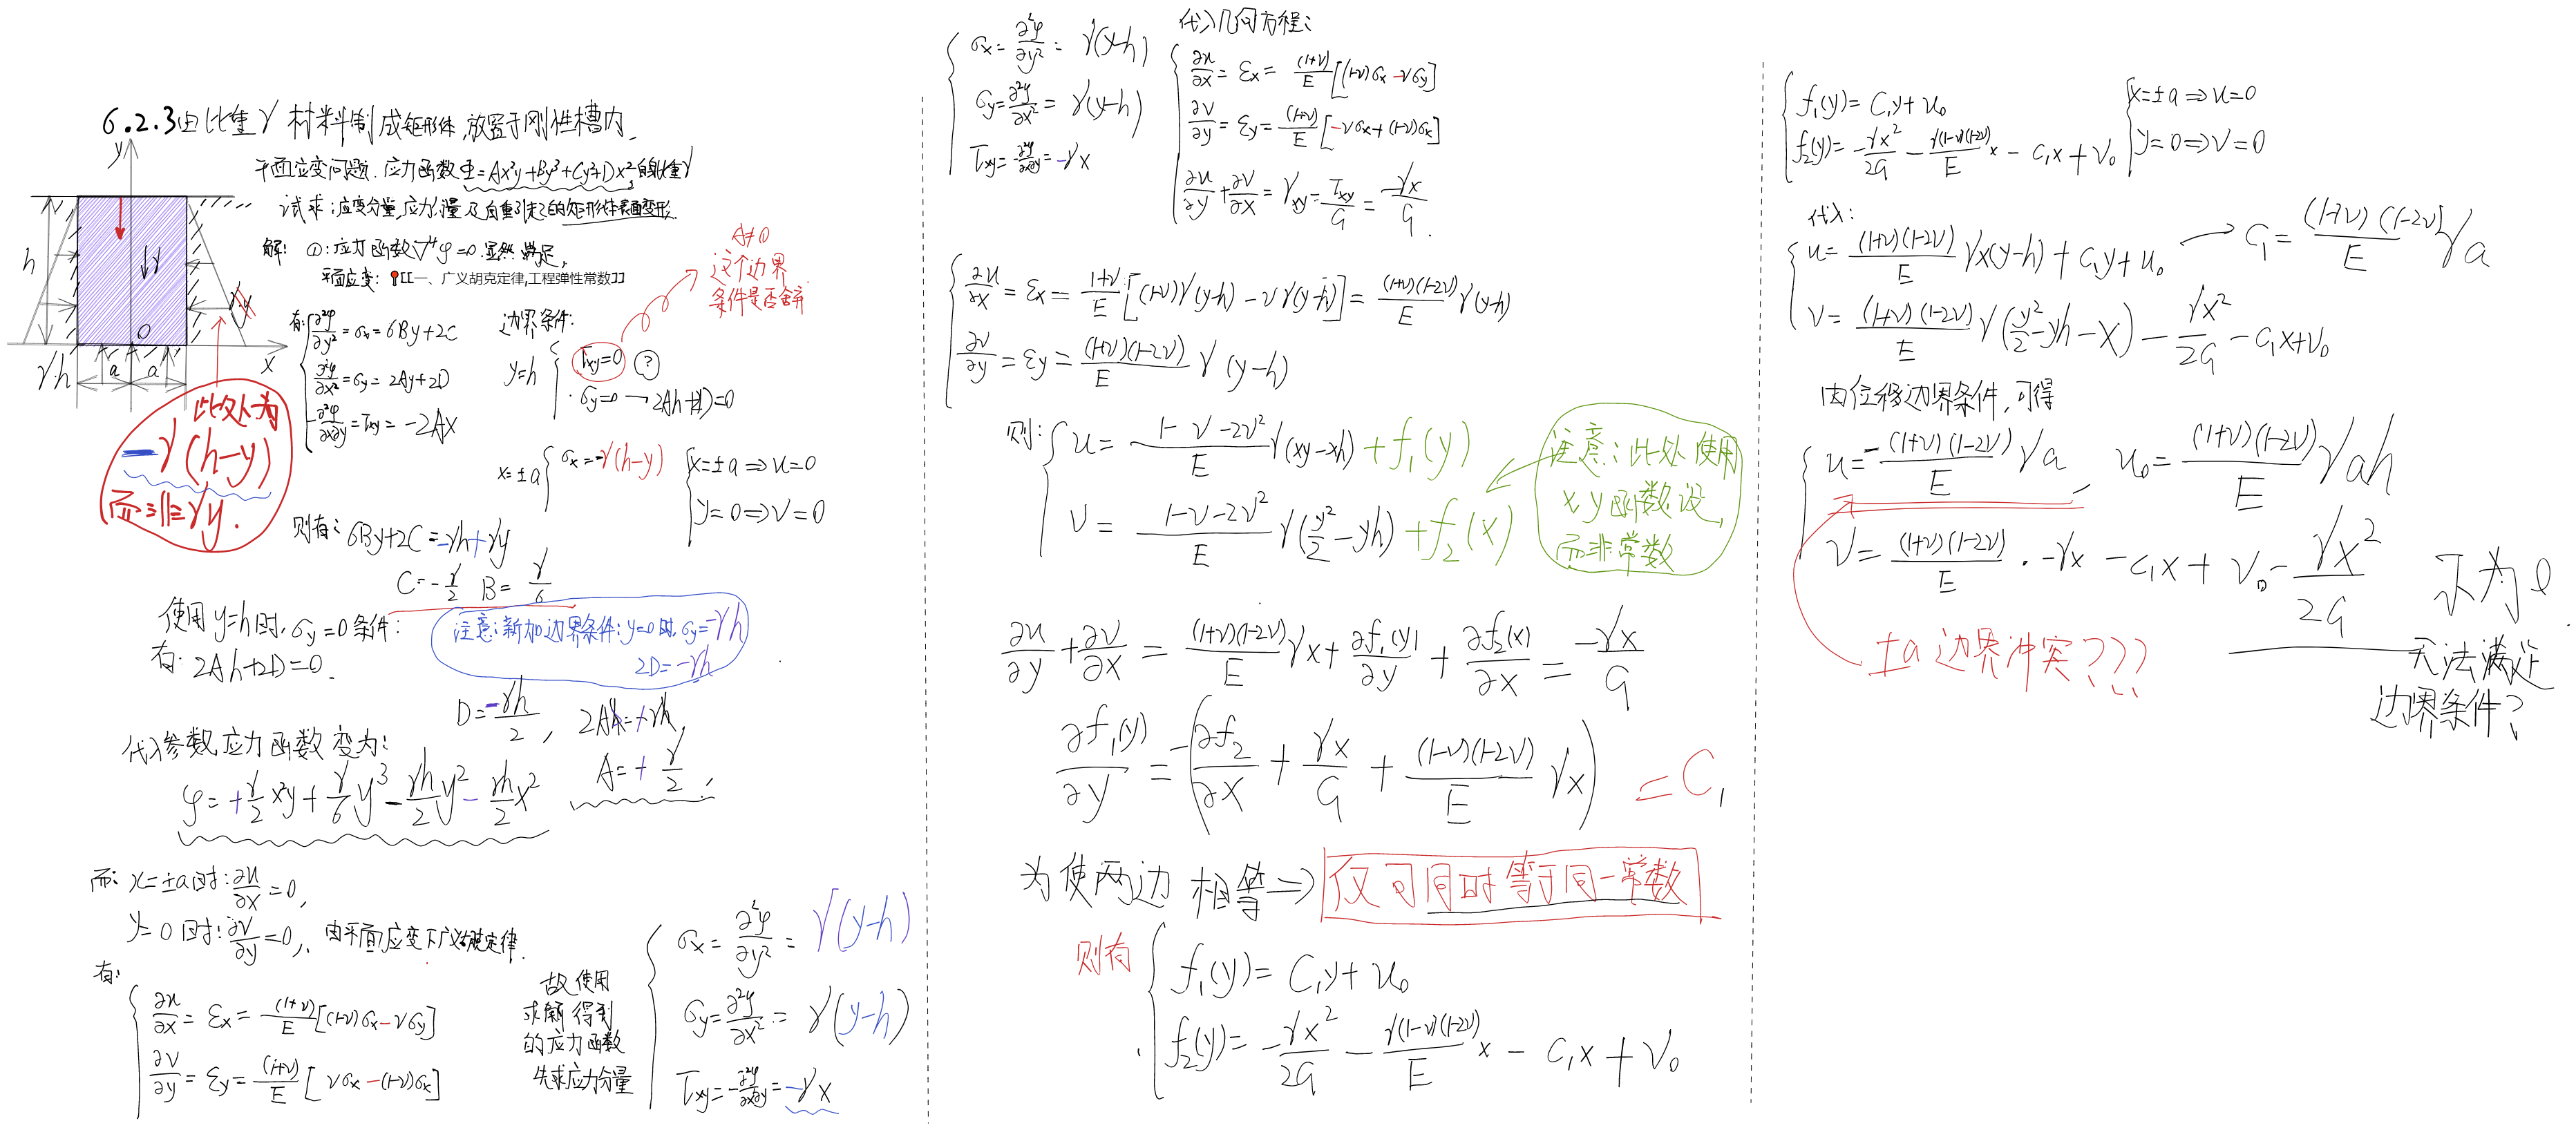 6.2.3由比重γ材料制成矩形体,放置于刚性槽内
平面应变问题.应力函数Φ=Ax²y+By³+Cy²+Dx²
试求:应变分量,应力分量及自重引起的矩形体表面变形.
解: ①:应力函数∇⁴φ=0.显然满足,
平面应变: [[一、广义胡克定律,工程弹性常数]]
y
h
γ
O
x
γh
a
a
此处为
-γ(h-y)
而非γy.
有: ∂²φ/∂y²=σx=6By+2C
∂²φ/∂x²=σy=2Ay+2D
-∂²φ/∂x∂y=τxy=-2Ax
边界条件:
y=h { τxy=0 ?
σy=0→2Ah+2D=0
A≠0
这个边界
条件是否舍弃
x=±a { σx=-γ(h-y)
x=±a⇒u=0
y=0⇒v=0
则有: 6By+2C=-γh+γy
C=-γ/2 B=γ/6
使用y=h时,σy=0条件:
有: 2Ah+2D=0.
注意:新加边界条件:y=0时,σy=-γh
2D=-γh
D=-γh/2, 2Ah=+γh,
A=+γ/2,
代入参数,应力函数变为:
φ=+γ/2 x²y+γ/6 y³-γh/2 y²-γh/2 x²
而: x=±a时:∂u/∂x=0,
y=0时:∂v/∂y=0,. 由平面应变下广义胡克定律.
有:
∂u/∂x=εx=(1+ν)/E[(1-ν)σx-νσy]
∂v/∂y=εy=(1+ν)/E[νσx-(1-ν)σx]
故使用
求解得到
的应力函数
先求应力分量
σx=∂²φ/∂y²=γ(y-h)
σy=∂²φ/∂x²=γ(y-h)
τxy=-∂²φ/∂x∂y=-γx
σx=∂²φ/∂y²=γ(y-h)
σy=∂²φ/∂x²=γ(y-h)
τxy=∂²φ/∂x∂y=-γx
代入几何方程:
∂u/∂x=εx=(1+ν)/E[(1-ν)σx-νσy]
∂v/∂y=εy=(1+ν)/E[-νσx+(1-ν)σx]
∂u/∂y+∂v/∂x=γxy=τxy/G=-γx/G.
∂u/∂x=εx=1+ν/E[(1-ν)γ(y-h)-νγ(y-h)]=(1+ν)(1-2ν)/E γ(y-h)
∂v/∂y=εy=(1+ν)(1-2ν)/E γ(y-h)
则: u=1-ν-2ν²/E γ(xy-xh)+f₁(y)
v=1-ν-2ν²/E γ(y²/2-yh)+f₂(x)
注意:此处使用
x,y函数设,
而非常数
∂u/∂y+∂v/∂x=(1+ν)(1-2ν)/E γx+∂f₁(y)/∂y+∂f₂(x)/∂x=-γx/G
∂f₁(y)/∂y=-(∂f₂/∂x+γx/G+(1-ν)(1-2ν)/E γx)=C₁
为使两边相等⇒仅可同时等于同一常数
则有 f₁(y)=C₁y+u₀
f₂(y)=-γx²/2G-γ(1-ν)(1-2ν)/E x-C₁x+v₀
f₁(y)=C₁y+u₀
f₂(y)=-γx²/2G-γ(1-ν)(1-2ν)/E x-C₁x+v₀
x=±a⇒u=0
y=0⇒v=0
代入:
u=(1+ν)(1-2ν)/E γx(y-h)+C₁y+u₀→C₁=(1+ν)(1-2ν)/E γa
v=(1+ν)(1-2ν)/E γ(y²/2-yh-x)-γx²/2G-C₁x+v₀
由位移边界条件,可得
u=-(1+ν)(1-2ν)/E γa, u₀=(1+ν)(1-2ν)/E γah
v=(1+ν)(1-2ν)/E·-γx-C₁x+v₀-γx²/2G 不为0.
±a边界冲突???
无法满足
边界条件?